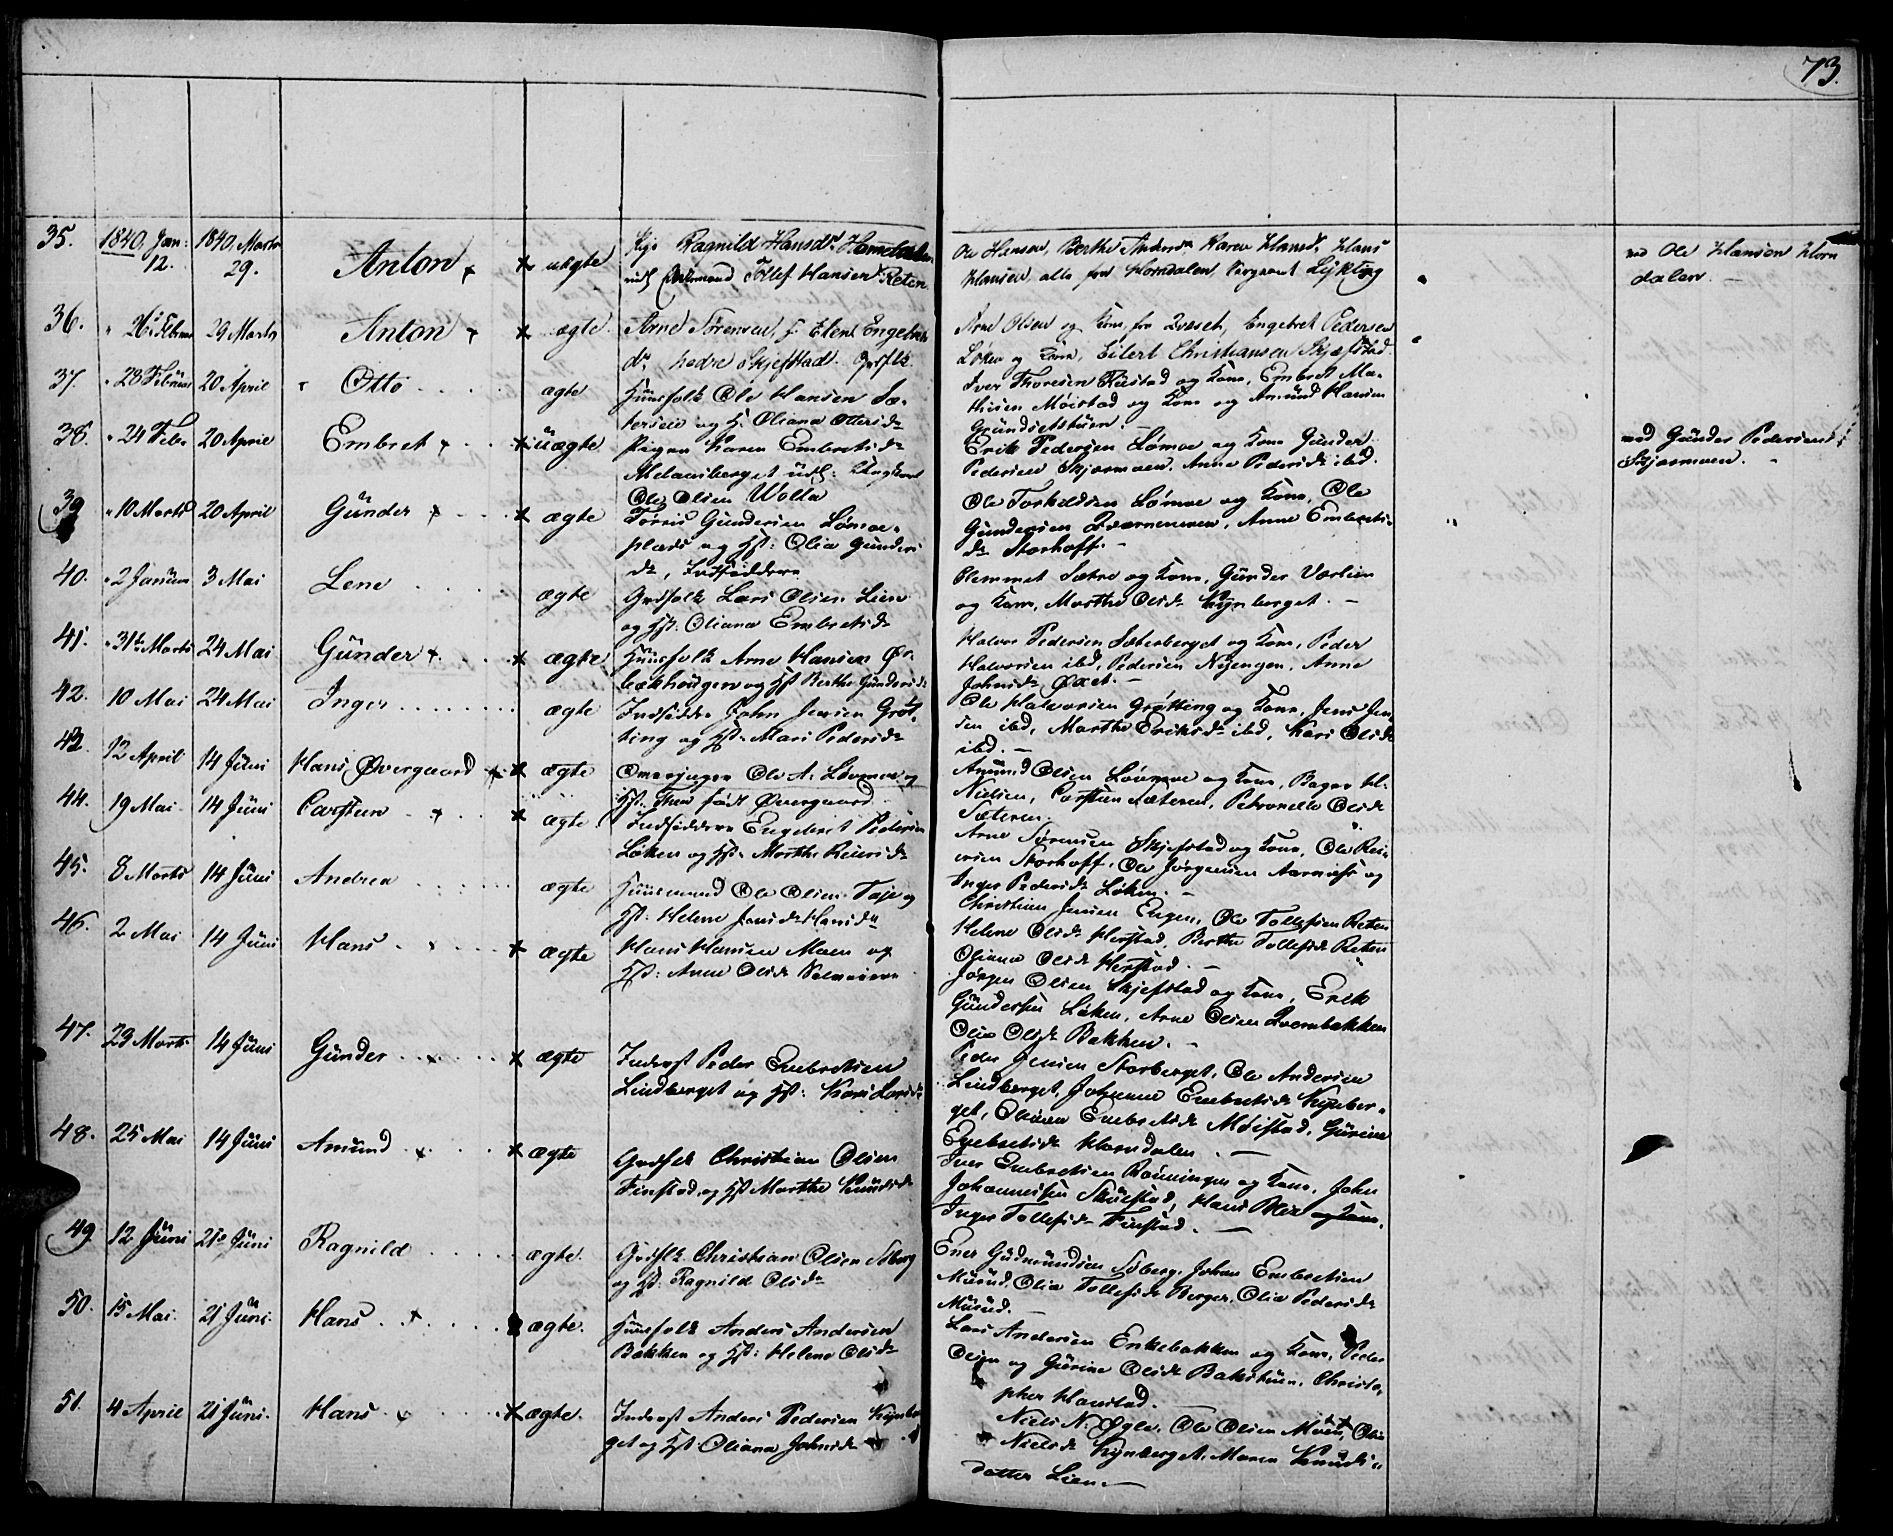 73.
35. 1840, Jan: 1840. Marts Anton uægte Pige Ragnild Hansdr
12. 29. Tollef Hansen Reten
Ole Hansen, Berthe Andersdr Karen Hansdr Hans
Hansen, alle fra Horndalen, Sergeant Lykting
ved Ole Hansen Horn
dalen. —
36. " 26de Febr 29 Marts Anton ægte Arne Sørensen, f: Elene Engebrets
dr nedre Skjefstad. Grdflk.
Arne Olsen og Kone, fra Qvæset, Engebret Pedersen
Løken og Kone, Eilert Christiansen Skjefstad.
37. " 28 Februar 20 April Otto ægte Huusfolk Ole Hansen Sæ-
tersen og H. Oliana Ottersdr
Iver Thoresen Rustad og Kone, Embret Ma-
thisen Moistad og Kone og Amund Hansen
Grundsetstuen.
38. " 24 Febr 20 April Embret uægte Pigen Karen Embretsdr
Melaasberget udl: Ungkarl
Ole Olsen Wolla
Erik Pedersen Lømoe og Kone Gunder
Pedersen Skjærmoen. Anne Pedersdr ibd.
med Gunder Pedersen
Skjærmoen. —
39 " 10 Marts 20 April Gunder ægte Torris Gundersen Lømoe-
plads og Hst: Olia Gunders
dr, Indsiddere
Ole Torkeldsen Lømoe og Kone, Ole
Gundersen Qværnemoen, Anne Embrets-
dr Storhoff. —
40. " 2 Januar 3 Mai Lene ægte Grdfolk Lars Olsen Lien
og Hst. Oliana Embretsdr
Clemmet Sætre og Kone, Gunder Værlien
og Kone, Marthe Olsdr Kynberget. —
41. " 31te Marts 24 Mai Gunder ægte Huusfolk Arne Hansen Ør-
bækhougen og Hst Berthe Gundersdr
Halvor Pedersen Sæterberget og Kone, Peder
Halvorsen ibd, Pedersen Nyengen, Anne
Johnsdr Øxet. —
42. 10 Mai 24 Mai Inger ægte Indsidder John Jensen Grøt-
ting og Hst. Mari Pedersdr
Ole Halvorsen Grøtting og Kone, Jens Jen-
sen ibd, Marthe Eriksdr ibd, Kari Olsdr
ibd. —
43. 12 April 14 Juni Hans Øvergaard ægte Ole A. Lømoe og
Hst. født Øvergaard
Amund Olsen Lømoe og Kone, Bager H.
Nielsen, Carsten Sæteren, Petronelle Olsdr
Sæteren.
44. 19 Mai 14 Juni Carsten ægte Indsiddere Engebret Pedersen
Løken og Hst. Marthe Reiersdr
Arne Sørensen Skjefstad og Kone, Ole Rei-
ersen Storhoff, Ole Jørgensen Aarnæs og
Inger Pedersdr Løken. —
45. 8 Marts 14 Juni Andrea ægte Huusmand Ole Olsen Taje og
Hst: Helene
Christian Jensen Engen, Ole Tollefsen Reten
Helene Olsdr Herstad, Berthe Tollefsdr Reten
Oliana Olsdr Herstad. —
46. 2 Mai 14 Juni Hans ægte Hans Hansen Moen og
Hst: Anne Olsdr
Jørgen Olsen Skjefstad og Kone, Erik
Gundersen Løken, Arne Olsen Qvernbakken
Olia Olsdr Bakken. —
47. 29 Marts 14 Juni Gunder ægte Inderst Peder Embretsen
Lindberget og Hst: Kari Larsdr
Peder Jensen Storberget, Ole Andersen
Lindberget, Johanne Embretsdr Kynber-
get, Oliana Embretsdr Moistad, Gurine
Engebretsdr Horndalen. —
48. 25 Mai 14 Juni Amund ægte Grdfolk Christian Olsen
Finstad, og Hst Marthe Knudsdr
Iver Embretsen Rønningen og Kone, John
Johannessen Skulstad, Hans Blix og Kone,
Inger Tollefsdr Finstad. —
49 12 Juni 21de Juni Ragnild ægte. Grdflk. Christian Olsen Noberg
og Hst. Ragnild Olsdr
Ener Gudmundsen Noberg, Johan Embretsen
Murud, Olia Tollefsdr Berger, Olia Pedersdr
Murud. —
50. 15 Mai. 21 Juni. Hans ægte. Huusfolk Anders Andersen
Bakken og Hst: Helene Olsdr
Lars Andersen Enkebakken og Kone, Peder
Olsen og Gurine Olsdr Bakstuen. Christo-
pher Harstad.
51. 4 April 21 Juni. Hans ægte. Inderst Anders Pedersen Kynber
get og Hst Oliana Johnsdr
Niels N: Øgle, Ole Olsen Moen, Olia
Nielsdr Kynberget. Maren Knuds-
datter Lien. —